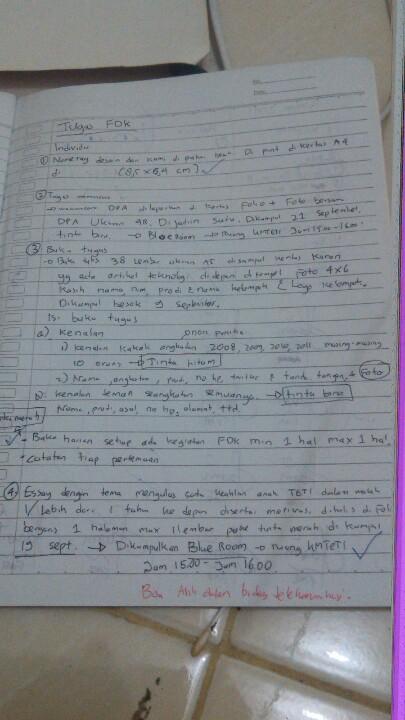 Tugas FDK
Individu
① Nametag desain dari kami di print di kertas A4
(8,5 x 5,4 cm) ✓
② Tugas
DPA kertas Folio + Foto bersama
DPA Ukuran 4R. Dijadiin satu. Dikumpul 21 September.
tinta biru. → Blue Room → Ruang HMTETI Jam 15.00 - 16.00
③ Buku tugas
→ Buku tulis 38 lembar ukuran A5 disampul kertas Karton
yg ada artikel teknologi didepan ditempel Foto 4x6
Kasih nama, nim, prodi & nama kelompok & Logo kelompok.
Dikumpul besok 9 september.
Isi buku tugas
a) Kenalan
1) kenalan Kakak angkatan 2008, 2009, 2010, 2011 masing-masing
10 orang → Tinta hitam
2) Nama, angkatan, prodi, no hp, twitter & tanda tangan, & Foto
b) kenalan teman seangkatan semuanya. → tinta biru
Nama, prodi, asal, no hp, alamat, ttd.
✓ - Buku harian setiap ada kegiatan FDK min 1 hal max 1 hal
- Catatan tiap pertemuan
④ Essay dengan tema mengulas satu keahlian anak TETI dalam
✓ lebih dari 1 tahun ke depan disertai motivasi, ditulis di Folio
bergaris 1 halaman max 1 lembar pake tinta merah. di kumpul
19 sept. → Dikumpulkan Blue Room → ruang HMTETI ✓
Jam 15.00 - Jam 16.00
Ahli dalam bidang telekomunikasi.